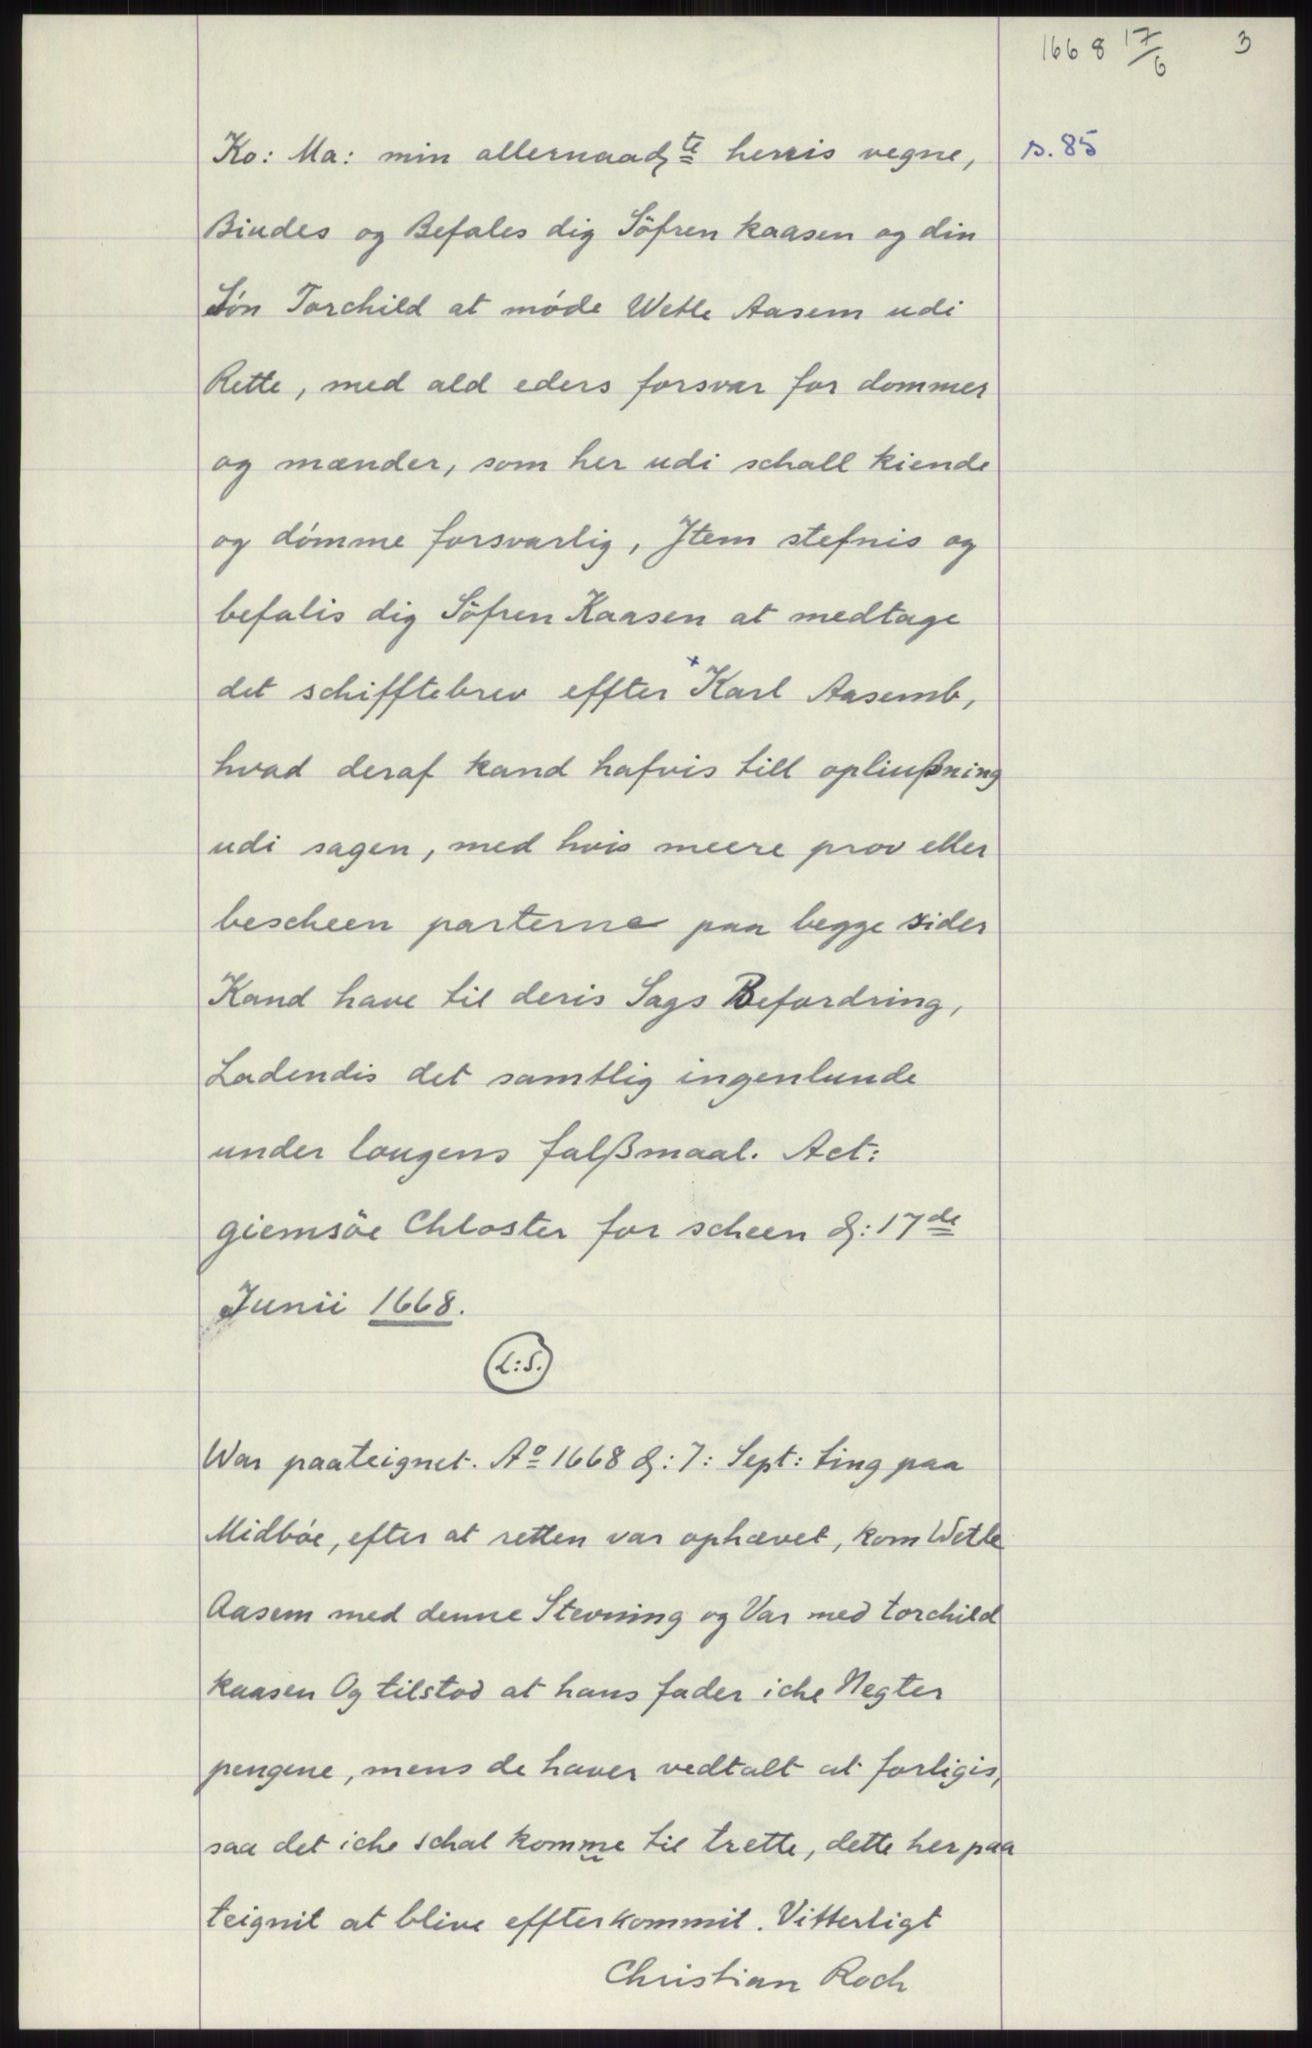 1668 17/6 3
s. 85
Ko: Ma: min allernaadte herris vegne,
Biudes og Befales dig Söfren kaasen og din
Søn Torchild at møde Wetle Aasem udi
Rette, med ald eders forsvar for dommer
og mænder, som her udi schall kiende
og dømme forsvarlig, Jtem stefnis og
befalis dig Söfren Kaasen at medtage
det schifftebrev effter x Karl Aasemb,
hvad deraf kand hafvis till opliußning
udi sagen, med hvis meere prov eller
bescheen parterne paa begge sider
Kand have til deris Sags Befordring,
Ladendis det samtlig ingenlunde
under lougens falßmaal. Act:
giemsöe Chloster for scheen d: 17de
Junii 1668.
L:S.
War paateignet. Ao 1668 d: 7: Sept: ting paa
Midbøe, efter at retten var ophævet, kom Wetle
Aasem med denne Stevning og Var med torchild
kaasen Og tilstod at hans fader iche Negter
pengene, mens de haver vedtalt at forligis,
saa det iche schal komme til trette, dette her paa
teignit at blive effterkommit. Vitterligt
Christian Roch